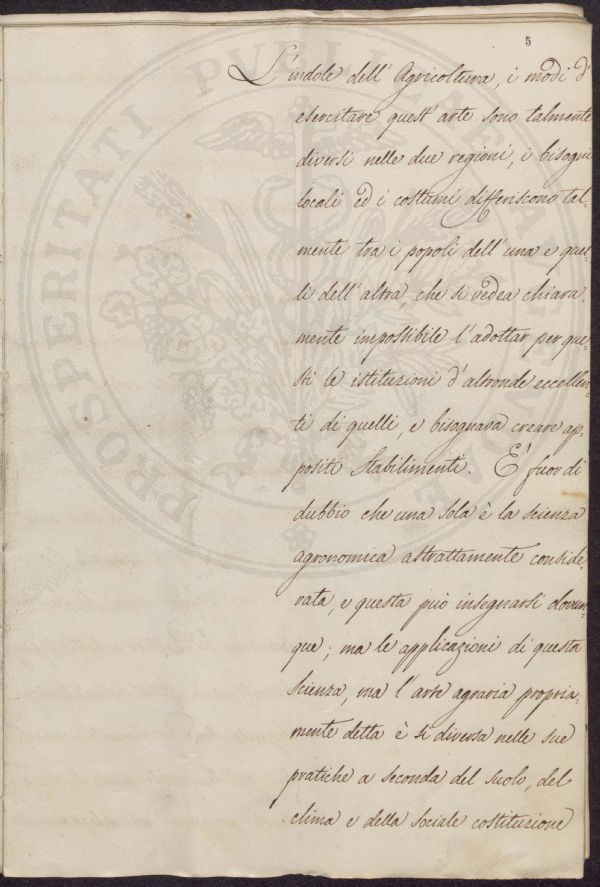 5
L'indole dell'Agricoltura, i modi d'
esercitare quest'arte sono talmente
diversi nelle due regioni, i bisogni
locali ed i costumi differiscono tal-
mente tra i popoli dell'una e quel-
li dell'altra, che si vedea chiara-
mente impossibile l'adottar per que-
sti le istituzioni d'altronde eccellen-
ti di quelli, e bisognava creare ap-
positi Stabilimenti. E' fuor di
dubbio che una sola è la scienza
agronomica astrattamente conside-
rata, e questa può insegnarsi dovun-
que; ma le applicazioni di questa
scienza, ma l'arte agraria propria-
mente detta è si diversa nelle sue
pratiche a seconda del suolo, del
clima e della sociale costituzione
PROSPERITATI PVBLICAE AVGENDAE